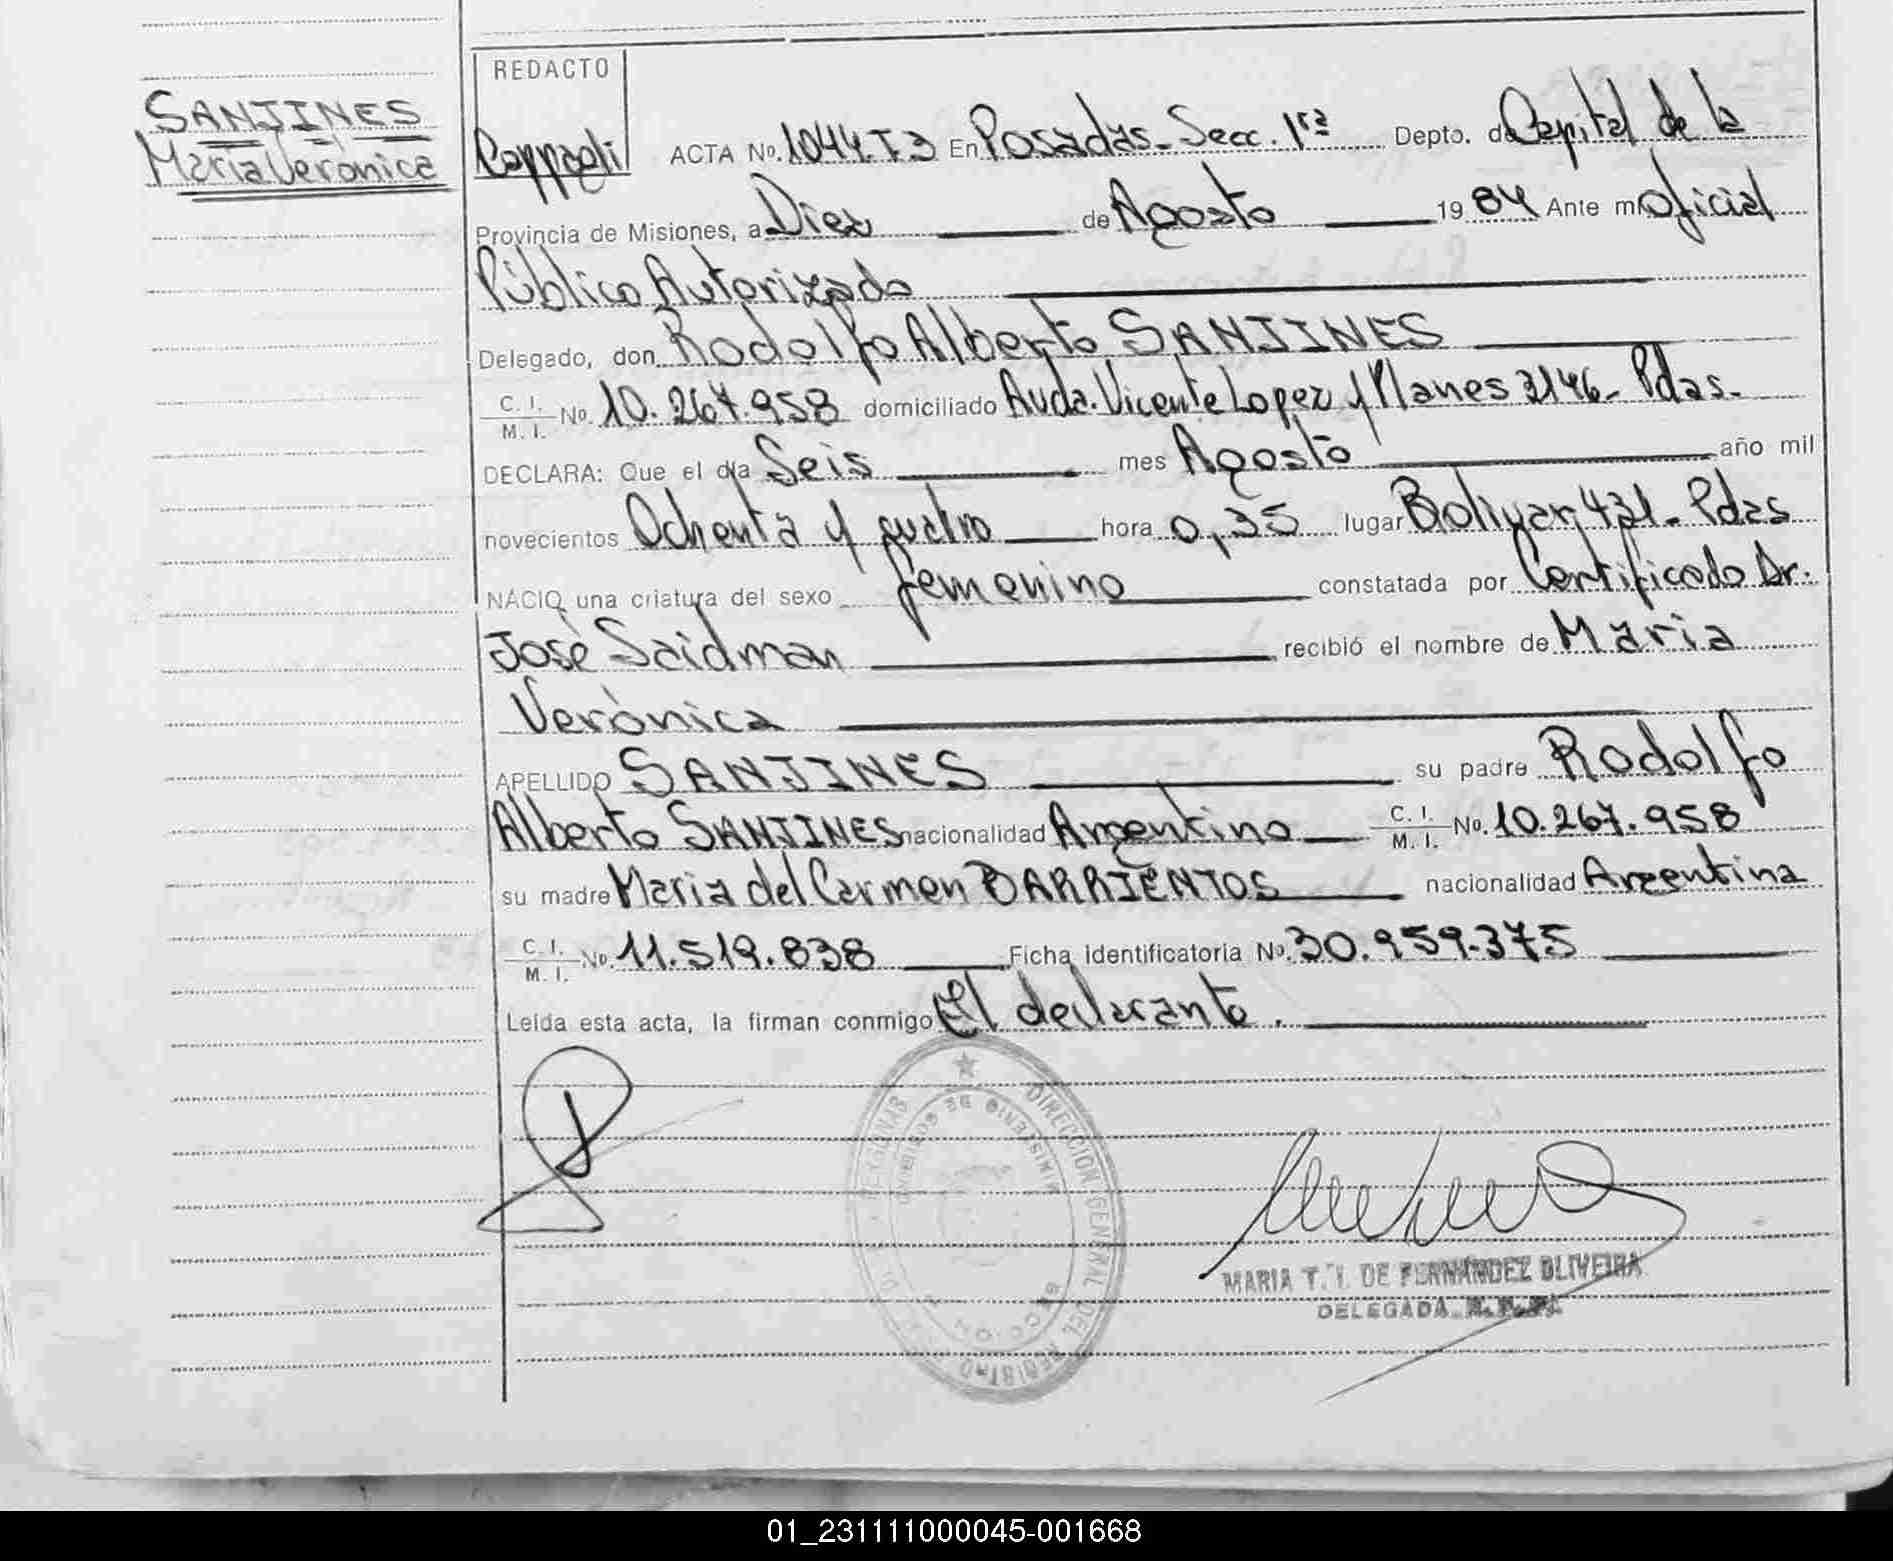 REDACTO
SANJINES
María Verónica
ACTA No. 1044. T 3 En Posadas - Secc. 1ra Depto. de Capital de la
Provincia de Misiones, a Diez de Agosto 1984 Ante mi Oficial
Público Autorizado
Delegado, don Rodolfo Alberto SANJINES
C. I.
M. I. No. 10.267.958 domiciliado Avda. Vicente Lopez y Planes 3146 - Pdas.
DECLARA: Que el día Seis mes Agosto año mil
novecientos Ochenta y cuatro hora 0,35 lugar Bolivar 421 - Pdas
NACIO una criatura del sexo femenino constatada por Certificado Dr.
José Saidman recibió el nombre de María
Verónica
APELLIDO SANJINES su padre Rodolfo
Alberto SANJINES nacionalidad Argentino C. I.
M. I. No. 10.267.958
su madre Maria del Carmen BARRIENTOS nacionalidad Argentina
C. I.
M. I. No. 11.519.838 Ficha identificatoria No. 30.959.375
Leída esta acta, la firman conmigo El declarante.
DIRECCION GENERAL DEL REGISTRO
MINISTERIO DE GOBIERNO
SECCION
MARIA T. I. DE FERNANDEZ OLIVEIRA
DELEGADA
01_231111000045-001668